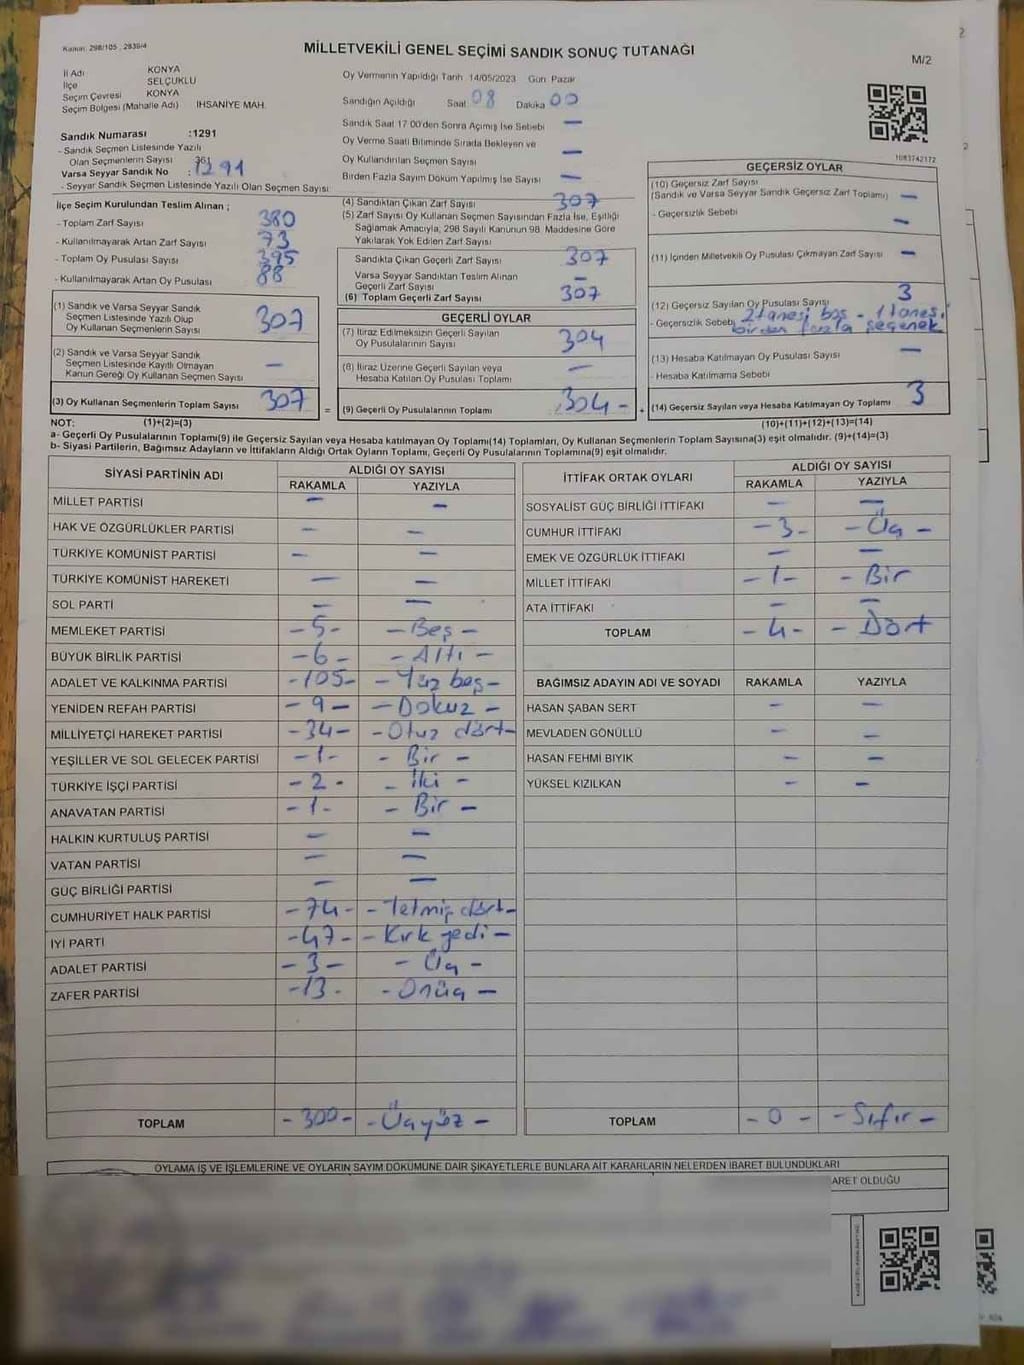 Kanun: 298/105 , 2839/4
MİLLETVEKİLİ GENEL SEÇİMİ SANDIK SONUÇ TUTANAĞI
M/2
İl Adı KONYA
İlçe SELÇUKLU
Seçim Çevresi KONYA
Seçim Bölgesi (Mahalle Adı) IHSANİYE MAH.
Sandık Numarası :1291
- Sandık Seçmen Listesinde Yazılı
Olan Seçmenlerin Sayısı 361
Varsa Seyyar Sandık No : 1291
- Seyyar Sandık Seçmen Listesinde Yazılı Olan Seçmen Sayısı
İlçe Seçim Kurulundan Teslim Alınan ;
- Toplam Zarf Sayısı 380
- Kullanılmayarak Artan Zarf Sayısı 73
- Toplam Oy Pusulası Sayısı 395
- Kullanılmayarak Artan Oy Pusulası 88
(1) Sandık ve Varsa Seyyar Sandık
Seçmen Listesinde Yazılı Olup
Oy Kullanan Seçmenlerin Sayısı 307
(2) Sandık ve Varsa Seyyar Sandık
Seçmen Listesinde Kayıtlı Olmayan
Kanun Gereği Oy Kullanan Seçmen Sayısı —
(3) Oy Kullanan Seçmenlerin Toplam Sayısı 307 =
Oy Vermenin Yapıldığı Tarih 14/05/2023 Gün Pazar
Sandığın Açıldığı Saat 08 Dakika 00
Sandık Saat 17:00'den Sonra Açımış İse Sebebi —
Oy Verme Saati Bitiminde Sırada Bekleyen ve
Oy Kullandırılan Seçmen Sayısı —
Birden Fazla Sayım Döküm Yapılmış İse Sayısı —
(4) Sandıktan Çıkan Zarf Sayısı 307
(5) Zarf Sayısı Oy Kullanan Seçmen Sayısından Fazla İse, Eşitliği
Sağlamak Amacıyla, 298 Sayılı Kanunun 98. Maddesine Göre
Yakılarak Yok Edilen Zarf Sayısı
Sandıkta Çıkan Geçerli Zarf Sayısı 307
Varsa Seyyar Sandıktan Teslim Alınan
Geçerli Zarf Sayısı —
(6) Toplam Geçerli Zarf Sayısı 307
GEÇERLİ OYLAR
(7) İtiraz Edilmeksizin Geçerli Sayılan
Oy Pusulalarının Sayısı 304
(8) İtiraz Üzerine Geçerli Sayılan veya
Hesaba Katılan Oy Pusulası Toplamı —
(9) Geçerli Oy Pusulalarının Toplamı 304 - +
1083742172
GEÇERSİZ OYLAR
(10) Geçersiz Zarf Sayısı
(Sandık ve Varsa Seyyar Sandık Geçersiz Zarf Toplamı) —
- Geçersizlik Sebebi —
(11) İçinden Milletvekili Oy Pusulası Çıkmayan Zarf Sayısı —
(12) Geçersiz Sayılan Oy Pusulası Sayısı 3
- Geçersizlik Sebebi 2 tanesi boş - 1 tanesi
birden fazla seçenek
(13) Hesaba Katılmayan Oy Pusulası Sayısı —
- Hesaba Katılmama Sebebi
(14) Geçersiz Sayılan veya Hesaba Katılmayan Oy Toplamı 3
NOT: (1)+(2)=(3) (10)+(11)+(12)+(13)=(14)
a- Geçerli Oy Pusulalarının Toplamı(9) ile Geçersiz Sayılan veya Hesaba katılmayan Oy Toplamı(14) Toplamları, Oy Kullanan Seçmenlerin Toplam Sayısına(3) eşit olmalıdır. (9)+(14)=(3)
b- Siyasi Partilerin, Bağımsız Adayların ve İttifakların Aldığı Ortak Oyların Toplamı, Geçerli Oy Pusulalarının Toplamına(9) eşit olmalıdır.
SİYASİ PARTİNİN ADI ALDIĞI OY SAYISI
RAKAMLA YAZIYLA
MİLLET PARTİSİ — —
HAK VE ÖZGÜRLÜKLER PARTİSİ — —
TÜRKİYE KOMÜNİST PARTİSİ — —
TÜRKİYE KOMÜNİST HAREKETİ — —
SOL PARTİ — —
MEMLEKET PARTİSİ -5- -Beş-
BÜYÜK BİRLİK PARTİSİ -6- -Altı-
ADALET VE KALKINMA PARTİSİ -105- -Yüz beş-
YENİDEN REFAH PARTİSİ -9- -Dokuz-
MİLLİYETÇİ HAREKET PARTİSİ -34- -Otuz dört-
YEŞİLLER VE SOL GELECEK PARTİSİ -1- -Bir-
TÜRKİYE İŞÇİ PARTİSİ -2- -İki-
ANAVATAN PARTİSİ -1- -Bir-
HALKIN KURTULUŞ PARTİSİ — —
VATAN PARTİSİ — —
GÜÇ BİRLİĞİ PARTİSİ — —
CUMHURİYET HALK PARTİSİ -74- -Yetmiş dört-
İYİ PARTİ -47- -Kırk yedi-
ADALET PARTİSİ -3- -Üç-
ZAFER PARTİSİ -13- -Onüç-
TOPLAM -300- -Üçyüz-
İTTİFAK ORTAK OYLARI ALDIĞI OY SAYISI
RAKAMLA YAZIYLA
SOSYALİST GÜÇ BİRLİĞİ İTTİFAKI — —
CUMHUR İTTİFAKI -3- -Üç-
EMEK VE ÖZGÜRLÜK İTTİFAKI — —
MİLLET İTTİFAKI -1- -Bir
ATA İTTİFAKI — —
TOPLAM -4- -Dört
BAĞIMSIZ ADAYIN ADI VE SOYADI RAKAMLA YAZIYLA
HASAN ŞABAN SERT — —
MEVLADEN GÖNÜLLÜ — —
HASAN FEHMİ BIYIK — —
YÜKSEL KIZILKAN — —
TOPLAM -0- -Sıfır-
OYLAMA İŞ VE İŞLEMLERİNE VE OYLARIN SAYIM DÖKÜMÜNE DAİR ŞİKAYETLERLE BUNLARA AİT KARARLARIN NELERDEN İBARET BULUNDUKLARI
ARET OLDUĞU